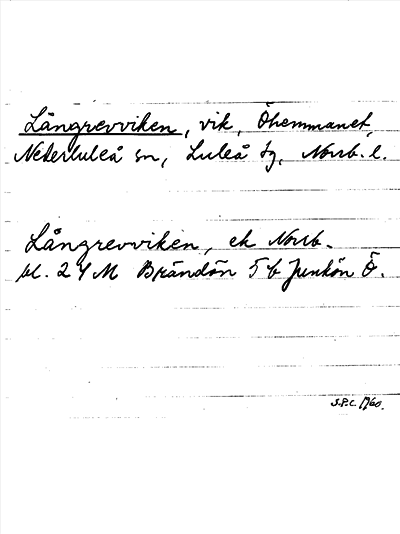 Långrevviken, vik, Öhemmanet,
Nederluleå sn, Luleå tg, Norrb. l.
Långrevviken, ek Norrb.
bl. 24 M Brändön 5 b Junkön Ö.
S.P.C. 1960.